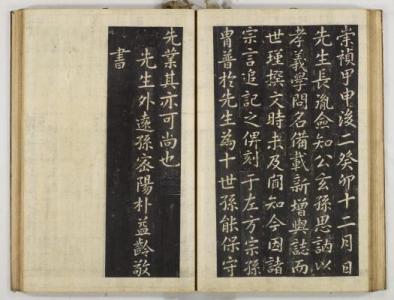 崇禎甲申後二癸卯十二月日
先生長胤僉知公玄孫思訥以
孝義學問名備載新增輿誌而
世瑾撰文時未及聞知今因諸
宗言追記之俾刻于左方宗孫
胄普於先生為十世孫能保守
先業其亦可尚也
先生外遠孫密陽朴益齡敬
書